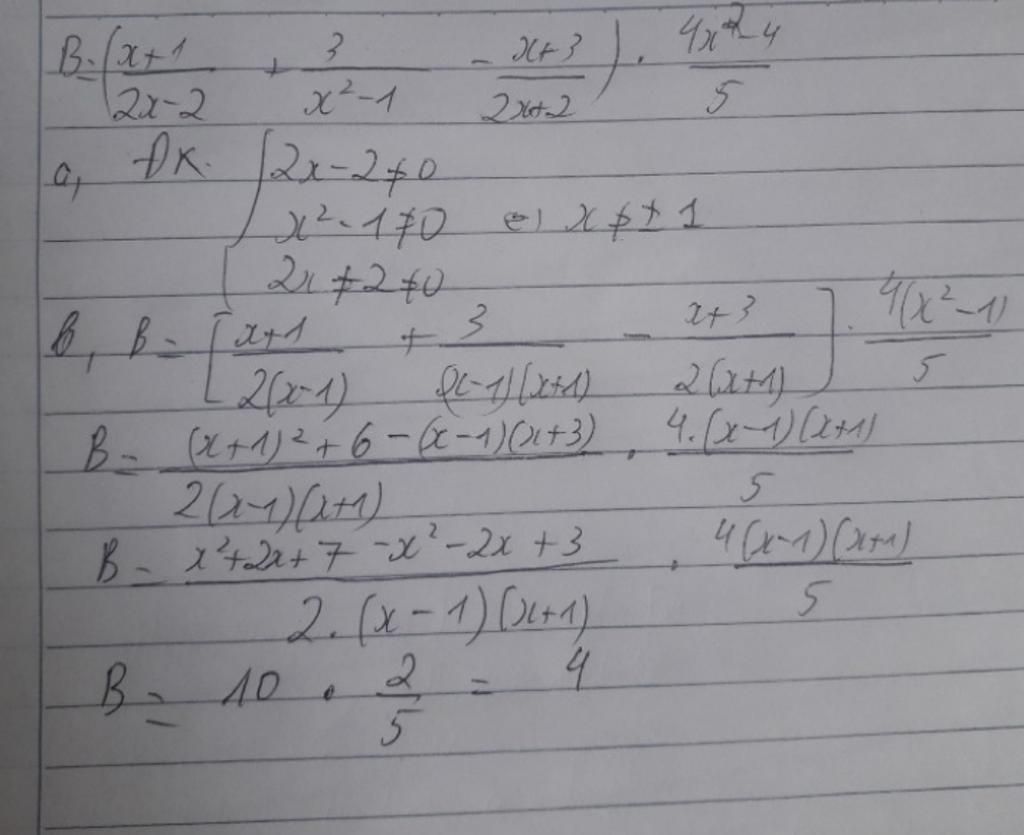 B = ( \frac{x+1}{2x-2} + \frac{3}{x^2-1} - \frac{x+3}{2x+2} ) . \frac{4x^2-4}{5}
a, ĐK. { 2x-2≠0
x^2-1≠0 <=> x≠±1
2x≠2≠0
b, B = [ \frac{x+1}{2(x-1)} + \frac{3}{(x-1)(x+1)} - \frac{x+3}{2(x+1)} ] . \frac{4(x^2-1)}{5}
B = \frac{(x+1)^2+6-(x-1)(x+3)}{2(x-1)(x+1)} . \frac{4.(x-1)(x+1)}{5}
B = \frac{x^2+2x+7-x^2-2x+3}{2.(x-1)(x+1)} . \frac{4(x-1)(x+1)}{5}
B = 10 . \frac{2}{5} = 4